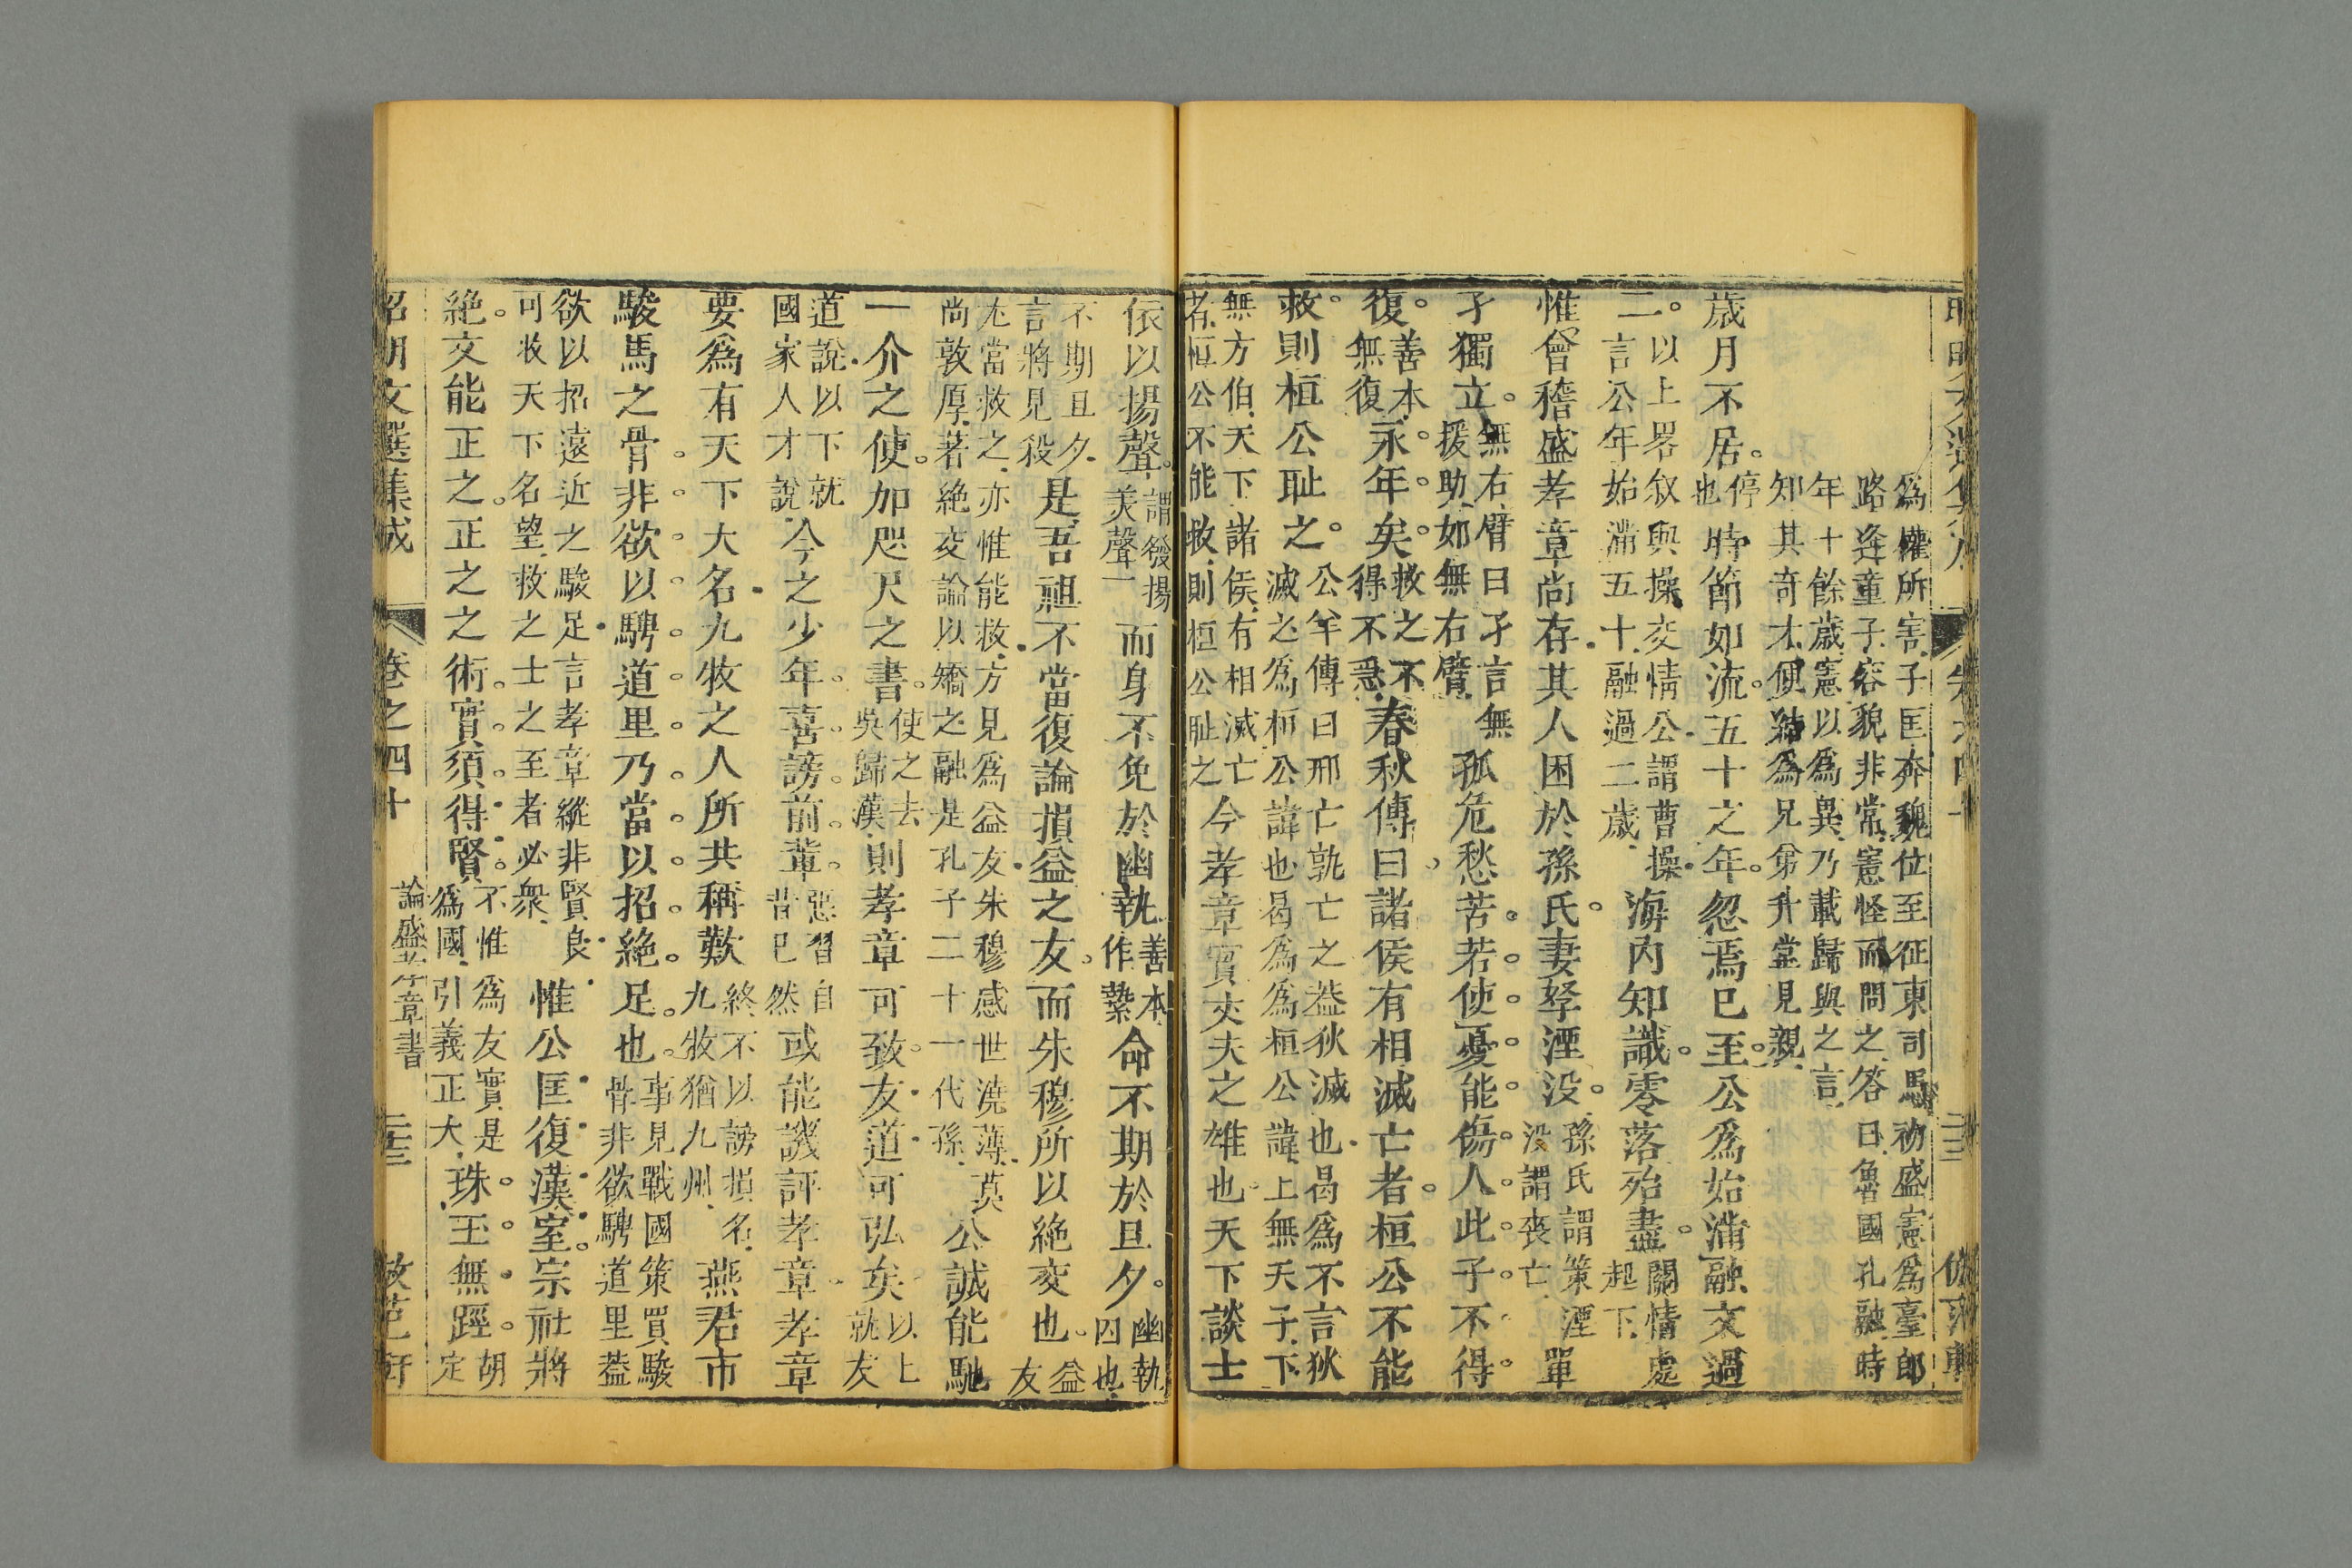 爲權所害子匡奔魏位至征東司馬初盛憲爲臺郎
路逢童子容貌非常憲怪而問之答曰魯國孔融時
年十餘歲憲以爲異乃載歸與之言
知其奇才便結爲兄弟升堂見親
歲月不居。停也時節如流。五十之年。忽焉已至。公爲始滿融文過
二。以上畧叙與操交情公謂曹操言公年始滿五十融過二歲海内知識。零落殆盡。關情處起下
惟會稽盛孝章尚存其人困於孫氏。妻孥湮没。孫氏謂策湮没謂喪亡單
孑獨立。無右臂曰孑言無援助如無右臂孤危愁苦。若使憂能傷人。此子不得
復。善本無復永年矣。救之不得不急春秋傳曰諸侯有相滅亡者。桓公不能
救。則桓公耻之。公羊傳曰邢亡孰亡之葢狄滅也曷爲不言狄滅之爲桓公諱也曷爲爲桓公諱上無天子下
無方伯天下諸侯有相滅亡者桓公不能救則桓公耻之今孝章實丈夫之雄也。天下談士
依以揚聲。謂發揚美聲而身不免於幽執善本作縶命不期於旦夕。幽執囚也
不期旦夕言將見殺是吾祖不當復論損益之友。而朱穆所以絶交也。益友
尤當救之亦惟能救方見爲益友朱穆感世澆薄莫尚敦厚著絶交論以矯之融是孔子二十一代孫公誠能馳
一介之使。加咫尺之書。使之去吳歸漢則孝章可致。友道可弘矣以上就友
道說以下就國家人才說今之少年。喜謗前輩。惡習自昔已然或能譏評孝章。孝章
要爲有天下大名九牧之人所共稱歎終不以謗損名九牧猶九州燕君市
駿馬之骨。非欲以騁道里。乃當以招絶足也。事見戰國策買駿骨非欲騁道里葢
欲以招遠近之駿足言孝章縱非賢良可收天下名望救之士之至者必衆惟公匡復漢室。宗社將
絶。文能正之。正之之術。實須得賢。不惟爲友實是爲國引義正大珠玉無踁。胡定
昭明文選集成 卷之四十 論盛孝章書 二十三 倣范軒